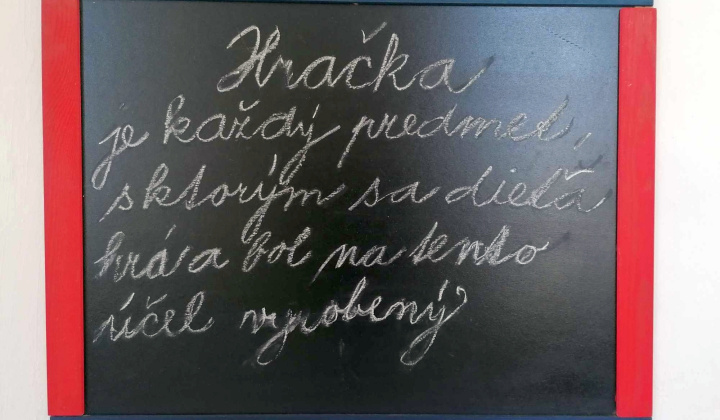 Hračka
je každý predmet,
s ktorým sa dieťa
hrá a bol na tento
účel vyrobený